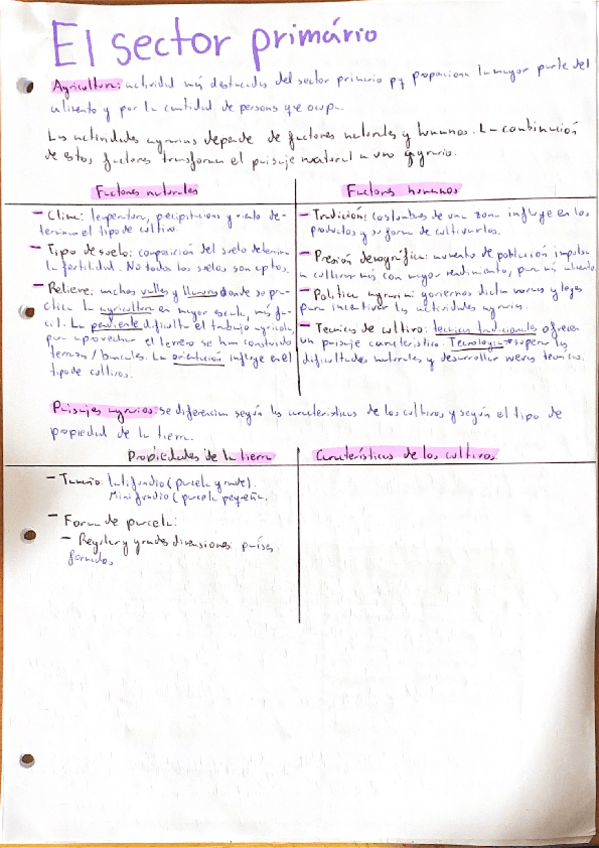 El sector primário
Agricultura: actividad más destacada del sector primario pq proporciona la mayor parte del
alimento y por la cantidad de persons que ocupa.
Las actividades agrarias depende de factores naturales y humanos. La combinación
de estos factores transforma el paisaje natural a uno agrario.
Factores naturales
- Clima: temperatura, precipitaciones y viento de-
terminan el tipo de cultivo.
- Tipo de suelo: composición del suelo determina
la fertilidad. No todos los suelos son aptos.
- Relieve: anchos valles y llanuras donde se pra-
ctica la agricultura en mayor escala, más fá-
cil. La pendiente dificulta el trabajo agrícola,
para aprovechar el terreno se han construido
terrazas / bancales. La orientación influye en el
tipo de cultivos.
Factores humanos
- Tradición: costumbres de una zona influye en los
productos y su forma de cultivarlos.
- Presión demográfica: aumento de población impulsa
a cultivar más con mayor rendimiento, para más alimento
- Política agraria: gobiernos dicta normas y leyes
para incentivar las actividades agrarias.
- Tecnicas de cultivo: tecnicas tradicionales ofrecen
un paisaje característico. Tecnología superar las
dificultades naturales y desarrollar nuevas tecnicas.
Paisajes agrarios: se diferencian según las características de los cultivos y según el tipo de
propiedad de la tierra.
Propiedades de la tierra
- Tamaño: latifundio (parcela grande).
Minifundio (parcela pequeña.
- Forma de parcela:
- Regular y grandes dimensiones: países
Características de los cultivos